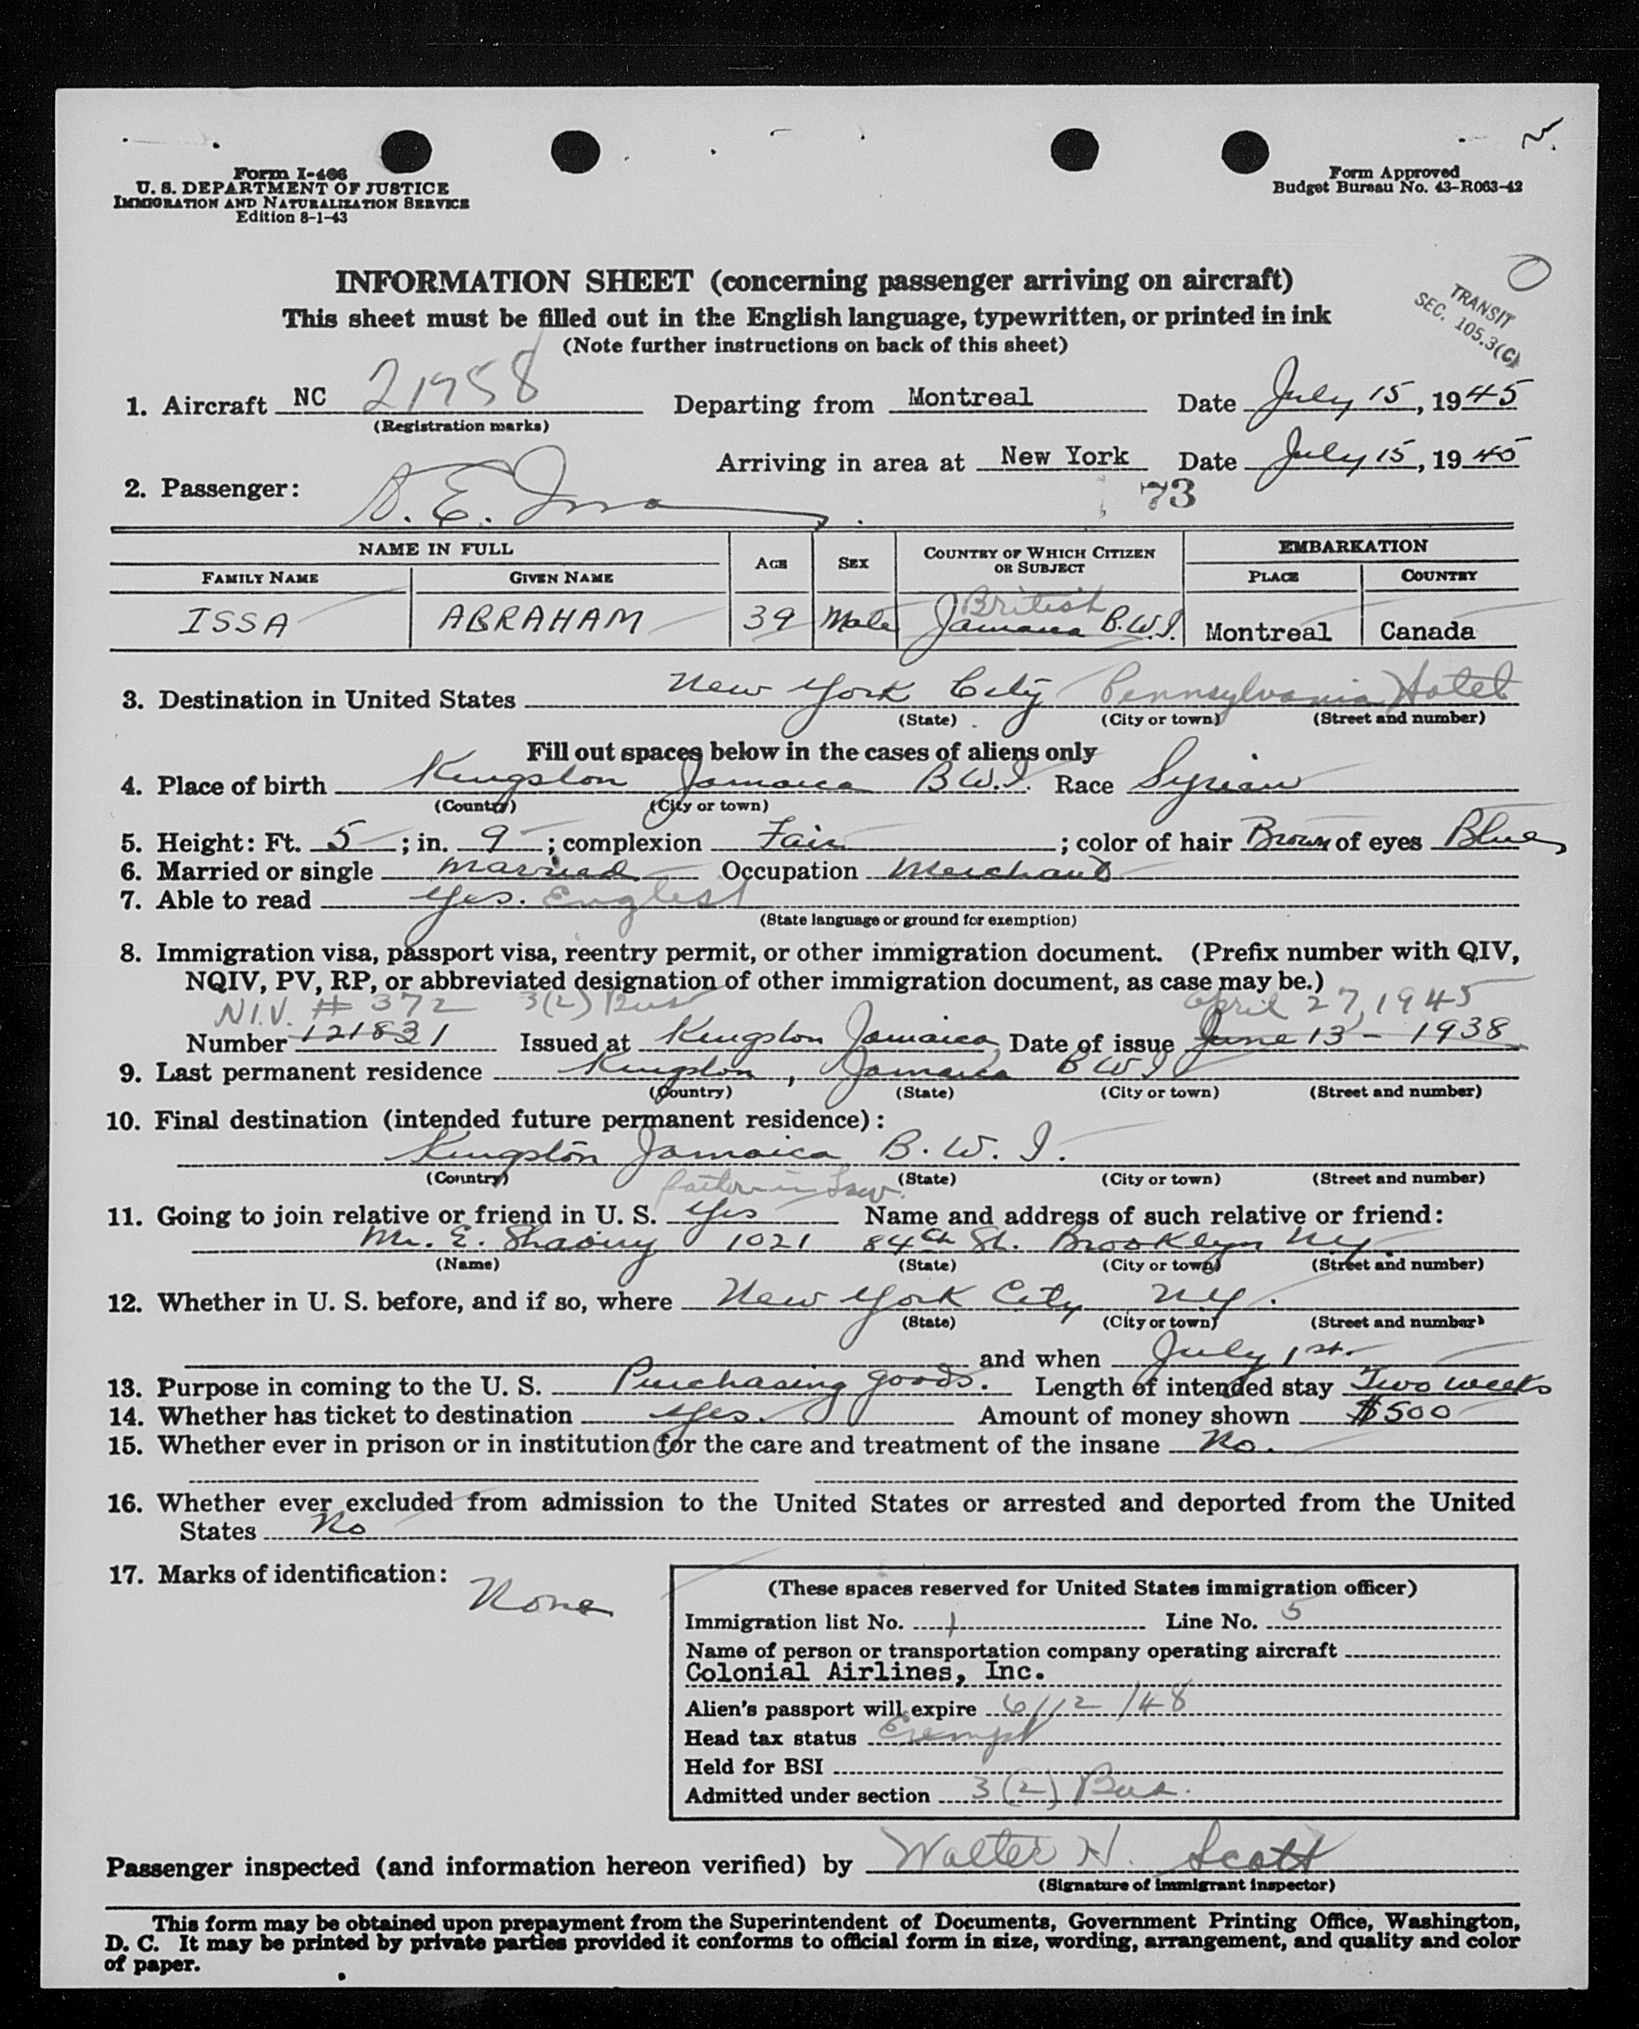 Form I-466
U. S. DEPARTMENT OF JUSTICE
IMMIGRATION AND NATURALIZATION SERVICE
Edition 8-1-43
Form Approved
Budget Bureau No. 43-R063-42
INFORMATION SHEET (concerning passenger arriving on aircraft)
This sheet must be filled out in the English language, typewritten, or printed in ink
(Note further instructions on back of this sheet)
TRANSIT
SEC. 105.3(C)
1. Aircraft NC 21758 Departing from Montreal Date July 15, 1945
(Registration marks)
Arriving in area at New York Date July 15, 1945
2. Passenger: A. E. Issa
73
NAME IN FULL AGE SEX COUNTRY OF WHICH CITIZEN OR SUBJECT EMBARKATION
FAMILY NAME GIVEN NAME PLACE COUNTRY
British
ISSA ABRAHAM 39 Male Jamaica B.W.I. Montreal Canada
3. Destination in United States New York City Pennsylvania Hotel
(State) (City or town) (Street and number)
Fill out spaces below in the cases of aliens only
4. Place of birth Kingston Jamaica B.W.I. Race Syrian
(Country) (City or town)
5. Height: Ft. 5; in. 9; complexion Fair; color of hair Brown of eyes Blue
6. Married or single Married Occupation Merchant
7. Able to read Yes. English
(State language or ground for exemption)
8. Immigration visa, passport visa, reentry permit, or other immigration document. (Prefix number with QIV,
NQIV, PV, RP, or abbreviated designation of other immigration document, as case may be.)
N.I.V. # 372 3(2) Bus April 27, 1945
Number 121831 Issued at Kingston Jamaica Date of issue June 13 - 1938
9. Last permanent residence Kingston, Jamaica BWI
(Country) (State) (City or town) (Street and number)
10. Final destination (intended future permanent residence):
Kingston Jamaica B. W. I.
(Country) (State) (City or town) (Street and number)
father in law.
11. Going to join relative or friend in U. S. Yes Name and address of such relative or friend:
Mr. E. 1021 84th St. Brooklyn NY.
(Name) (State) (City or town) (Street and number)
12. Whether in U. S. before, and if so, where New York City, NY.
(State) (City or town) (Street and number)
and when July 1st.
13. Purpose in coming to the U. S. Purchasing goods. Length of intended stay Two weeks
14. Whether has ticket to destination Yes. Amount of money shown $500
15. Whether ever in prison or in institution for the care and treatment of the insane No.
16. Whether ever excluded from admission to the United States or arrested and deported from the United
States No
17. Marks of identification: None
(These spaces reserved for United States immigration officer)
Immigration list No. 1 Line No. 5
Name of person or transportation company operating aircraft
Colonial Airlines, Inc.
Alien's passport will expire 6/12/48
Head tax status Exempt
Held for BSI
Admitted under section 3(2) Bus.
Passenger inspected (and information hereon verified) by Walter H. Scott
(Signature of immigrant inspector)
This form may be obtained upon prepayment from the Superintendent of Documents, Government Printing Office, Washington,
D. C. It may be printed by private parties provided it conforms to official form in size, wording, arrangement, and quality and color
of paper.